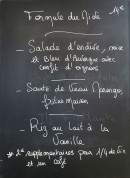 Formule du Midi 14€
- Salade d'endive, noix
et Bleu d'Auvergne avec
confit d'oignons
- Sauté de Veau Marengo,
frites maison
- Riz au lait à la
Vanille
* 2€ supplémentaires pour 1/4 de
et un café